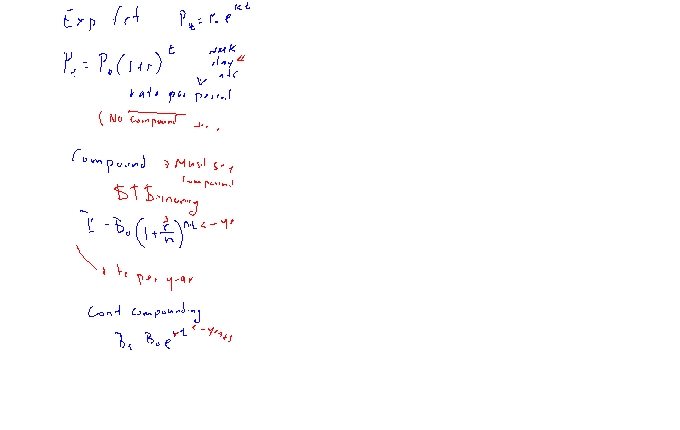 Exp fct P_t = P_0 e^{kt}
P_t = P_0 (1+r)^t week
day
etc
rate per period
(No compound ...
Compound → Must say
compound
$ ↑ $ money
B_0 (1 + r/n)^{nt} ← yr
per year
Cont compounding
B_t B_0 e^{rt} ← years